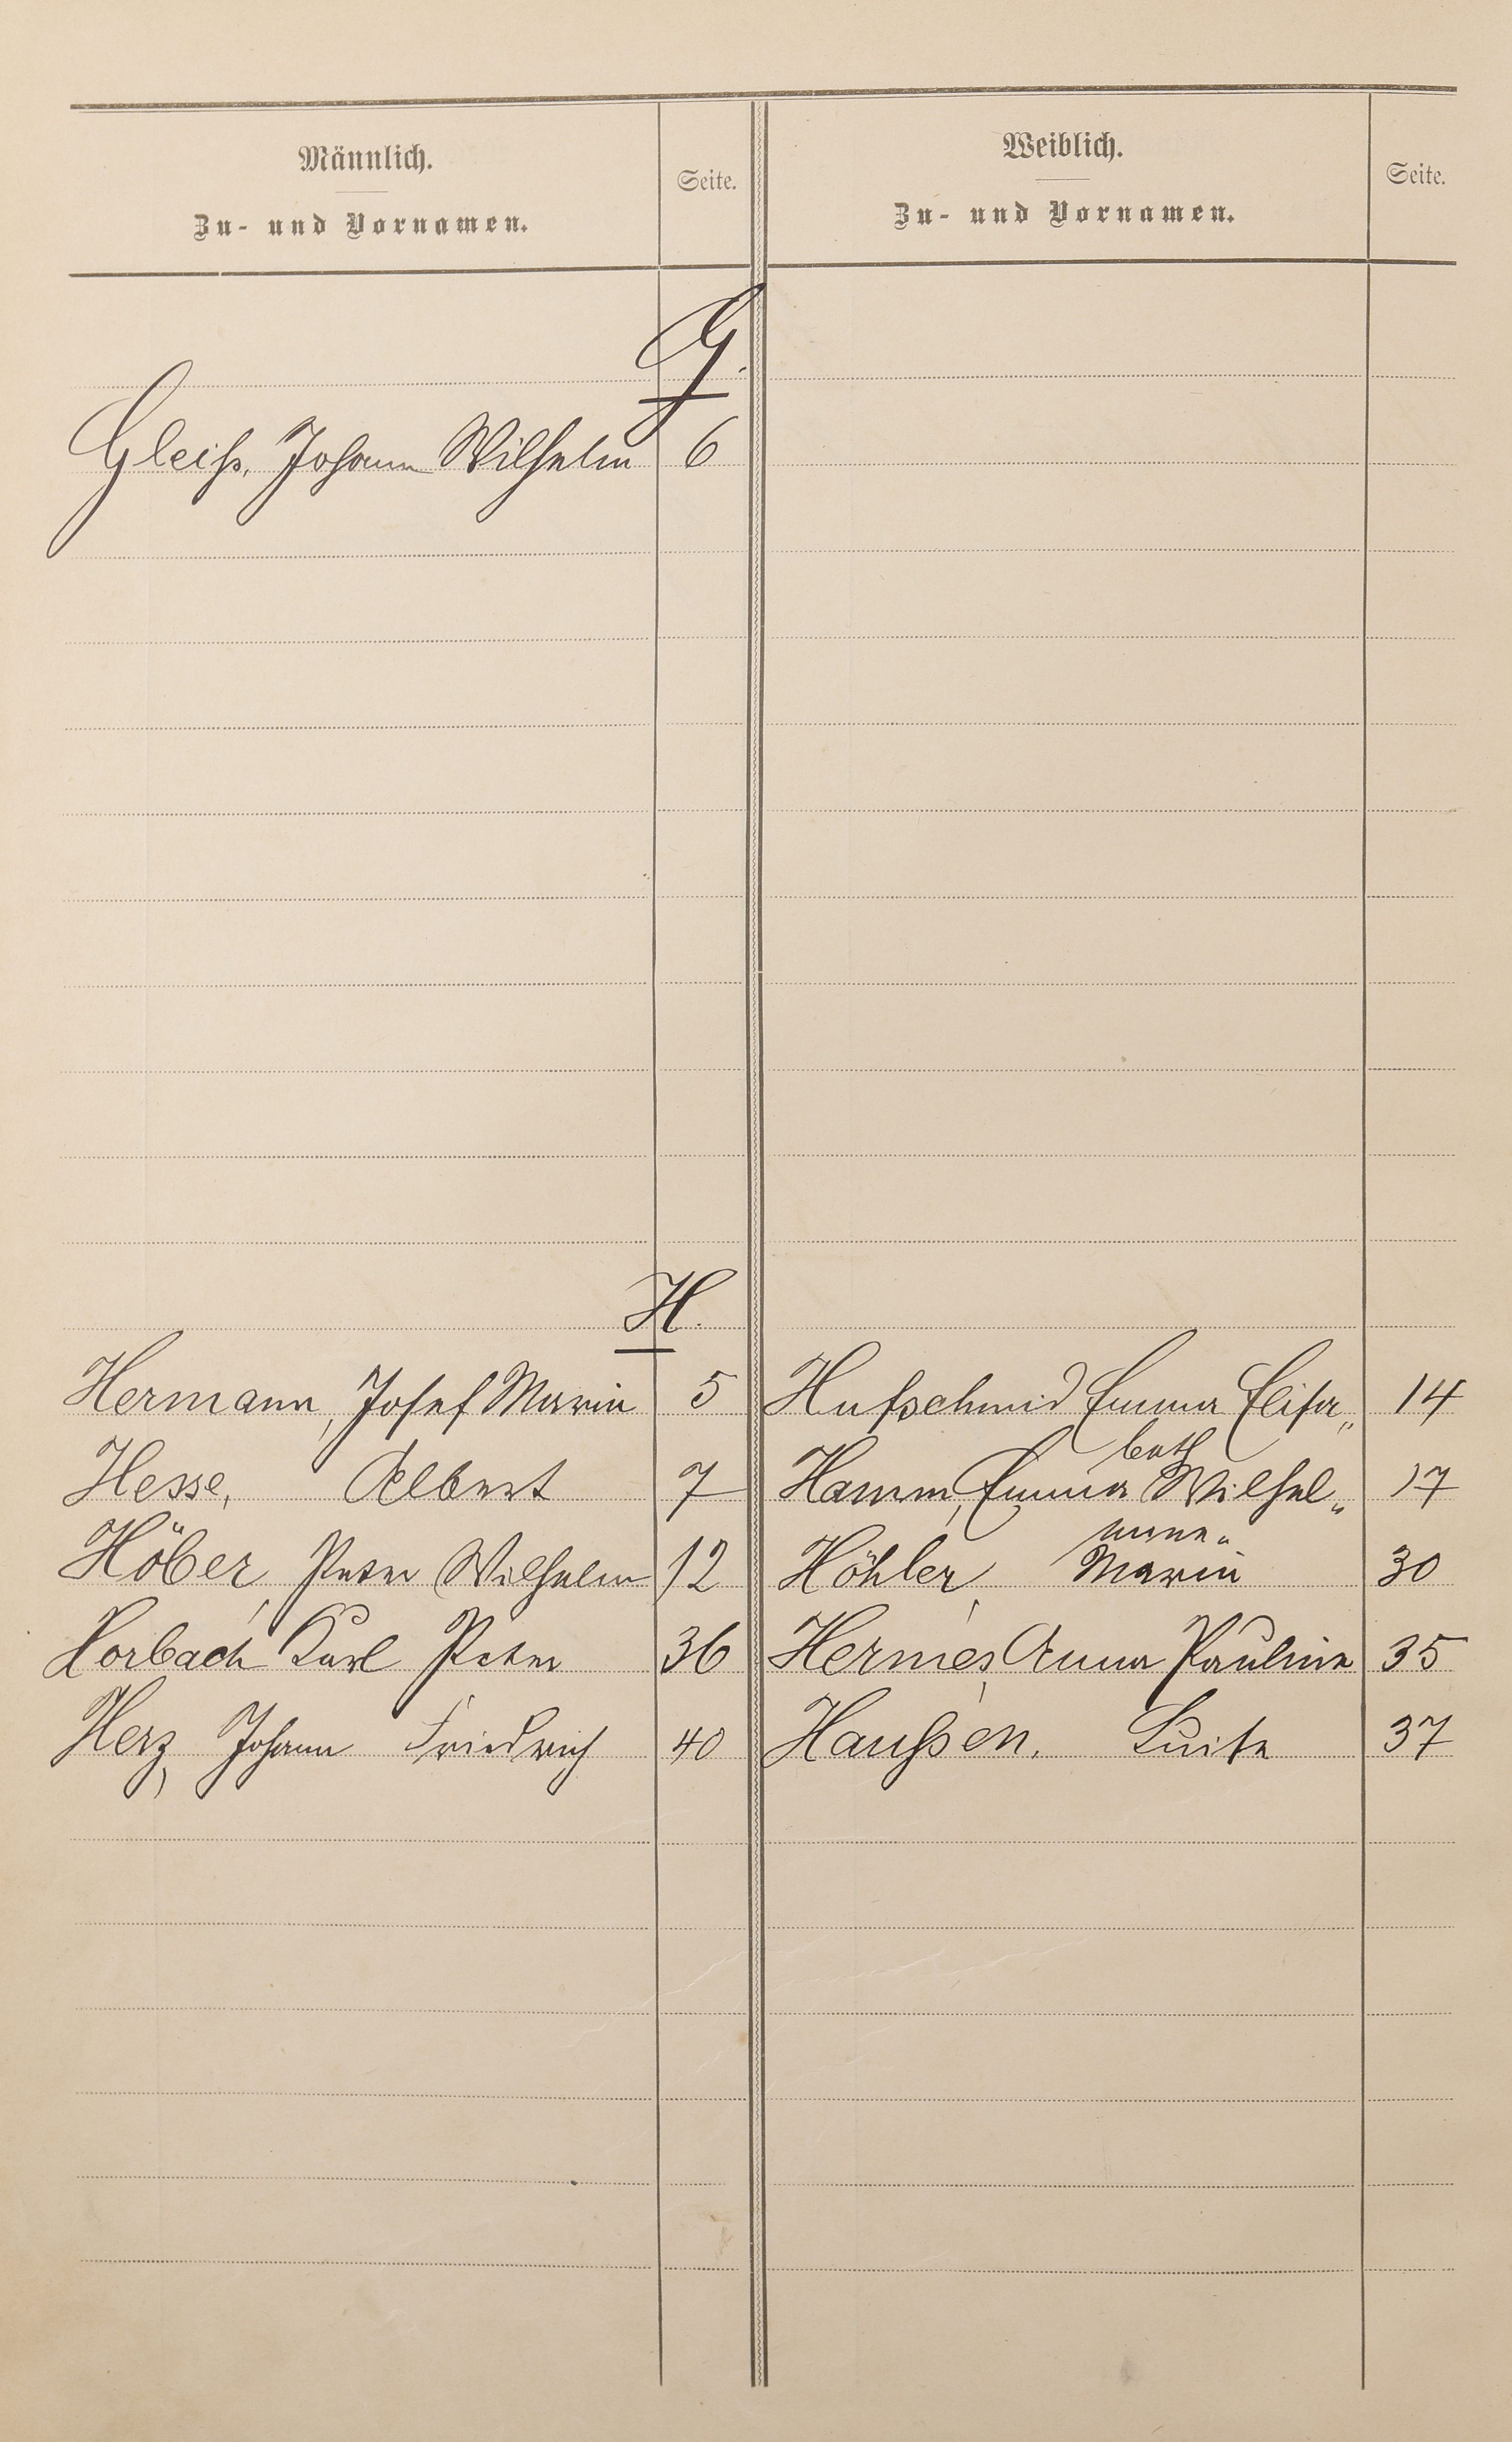 Männlich.
Zu- und Vornamen.
Seite.
Weiblich.
Zu- und Vornamen.
Seite.
G.
Gleiß, Johann Wilhelm 6
H.
Hermann, Josef Maria 5
Hufschmid Emma Elisa„ 14
beth
Hesse, Albert 7
Hamm, Emma Wilhel„ 17
mine„
Höber, Peter Wilhelm 12
Höhler, Maria 30
Horbach, Karl Peter 36
Hermes, Anna Pauline 35
Herz, Johann Friedrich 40
Haußen, Luise 37